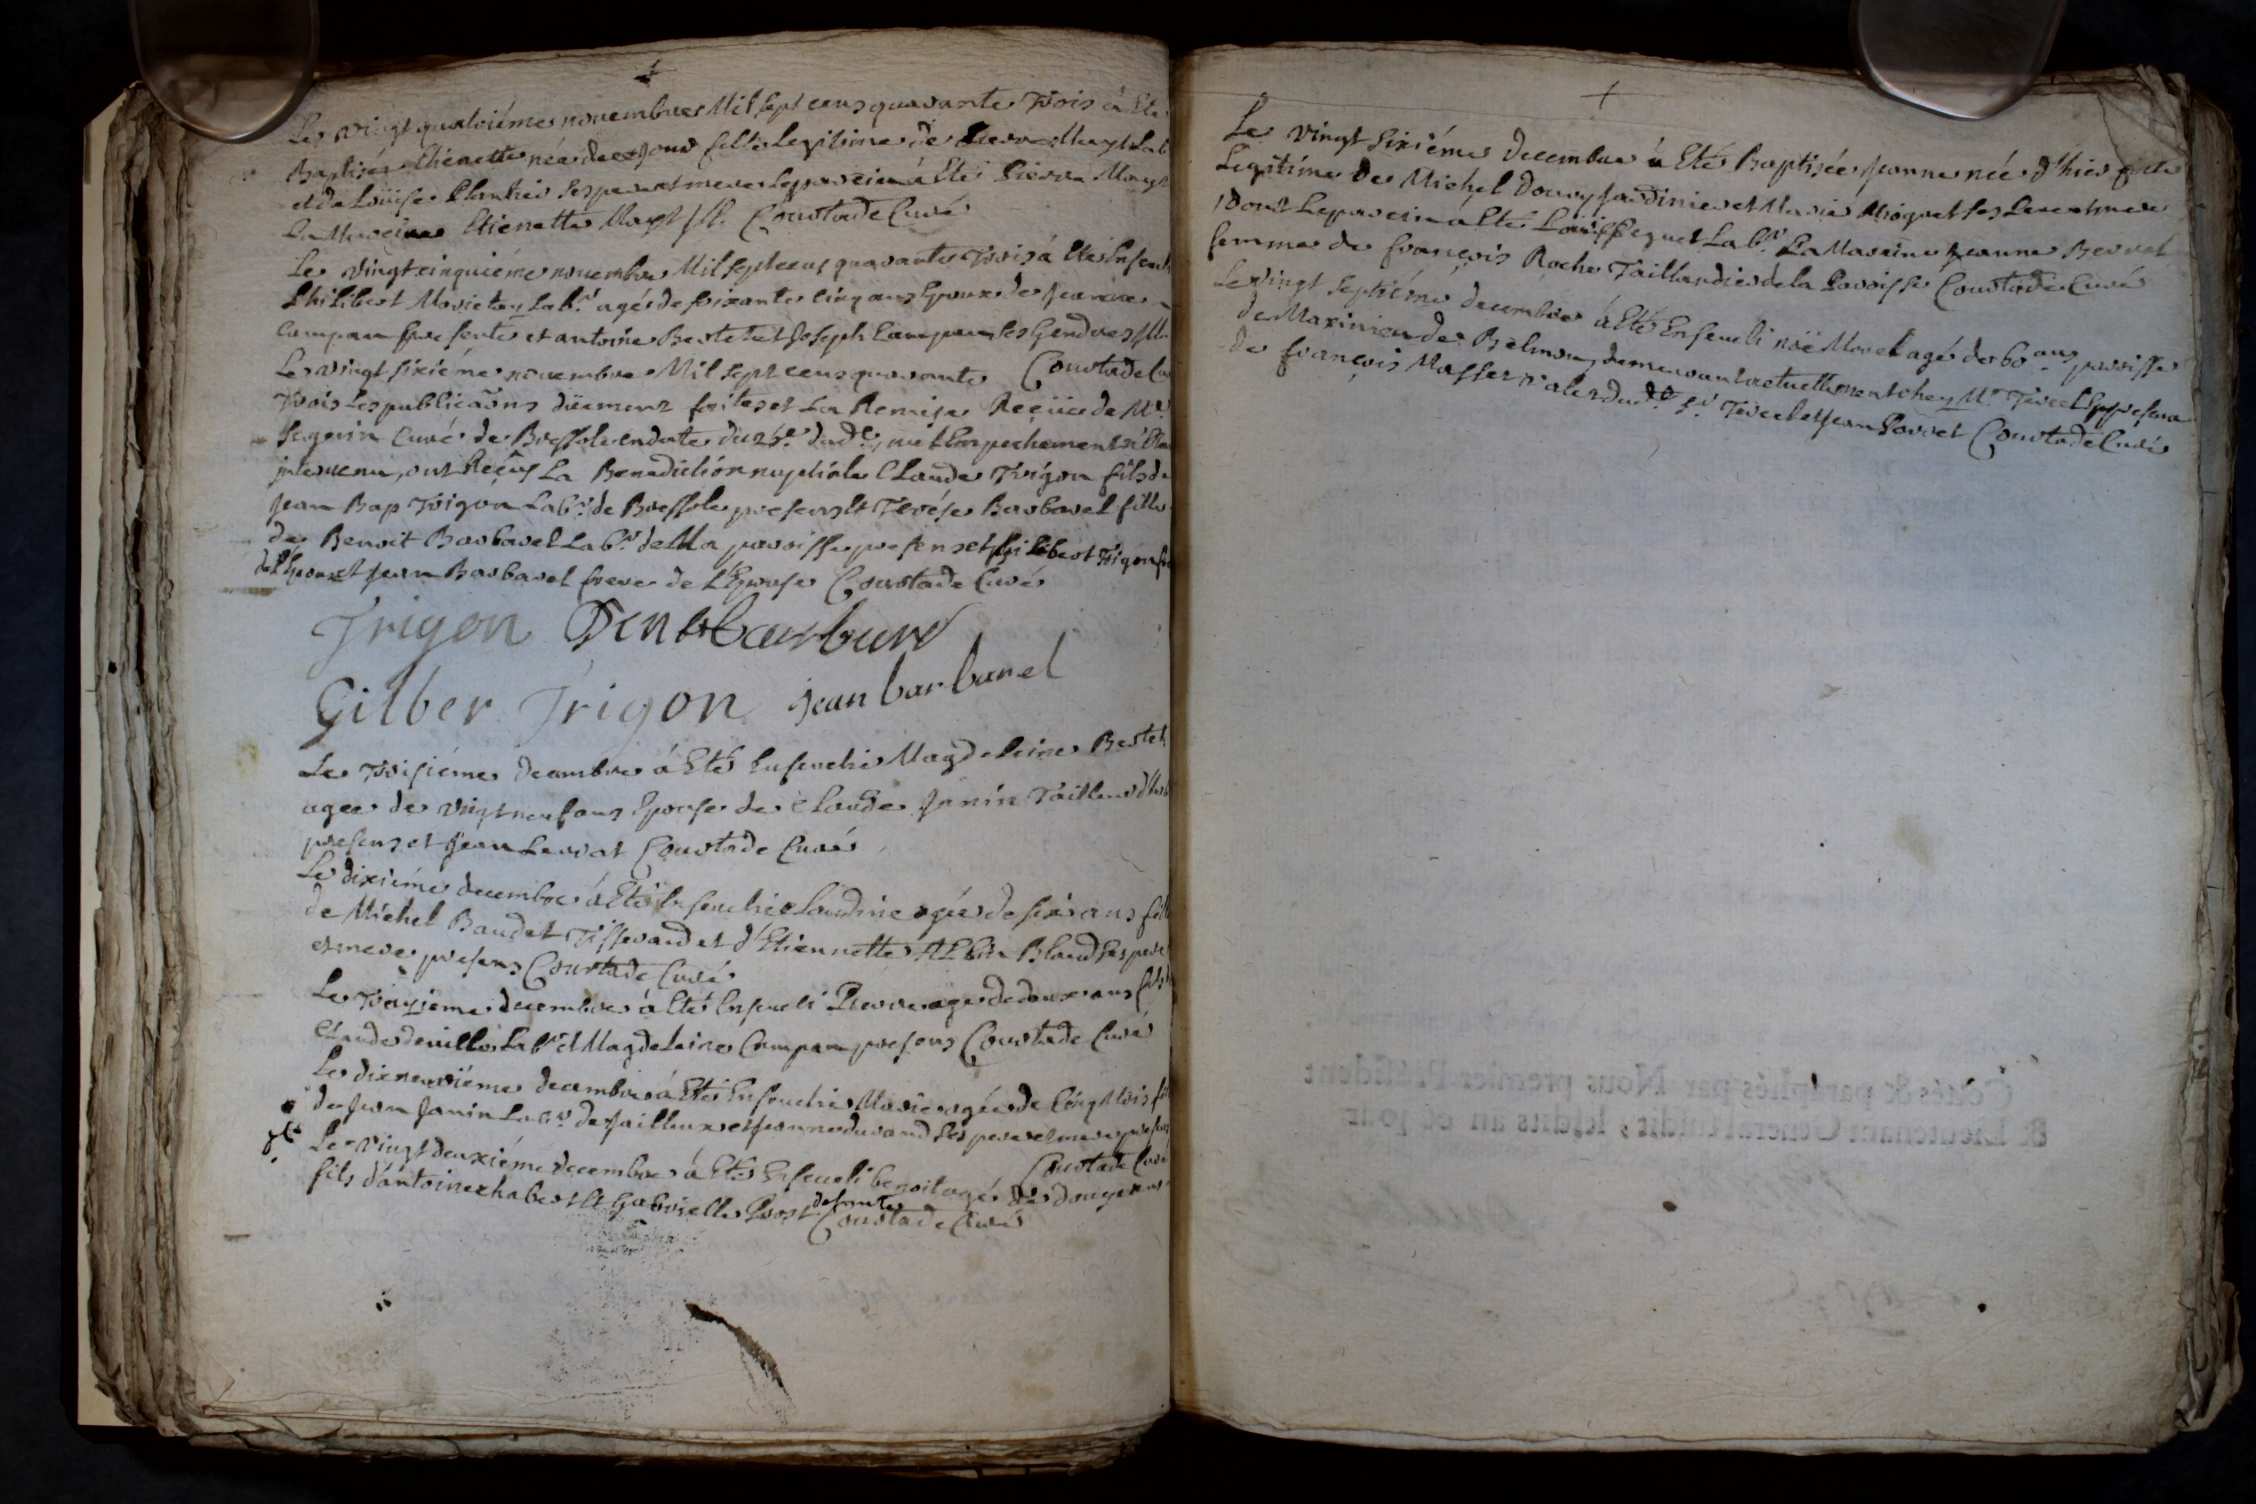 Le vingt quatriéme novembre Mil sept cens quarante trois à Eté
Baptisée Etienette née de ce jour fille Legitime de Pierre Lab
et de Loüise Plantier ses pere et mere Le parrein à Eté Pierre
La Mareine Etienette Courtade Curé
Le vingt cinquiéme novembre Mil sept cens quarante trois à Eté Enseveli
Philibert Lab.r agé de soixante cinq ans Epoux de Jeanne
Campan presente et antoine Bertet et Joseph Campan ses Gendres
Le vingt sixiéme novembre Mil sept cens quarante Courtade Cu
trois Les publicaõns düement faites et La Remise Reçüe de Mr
Seguin Curé de Bressole en date du 25e dud.t, nul Empechement n'Etant
intervenu, ont Reçûs La Benediction nuptiale Claude Trigon fils de
Jean Bap Trigon Lab.r de Bressole present et Terése Barbarel fille
de Benoit Barbarel Lab.r de Ma paroisse present et Gilibert Trigon fr
de l'Epoux et Jean Barbarel frere de L'Epouse Courtade Curé
Trigon
Gilber Trigon jean barbarel
Le troisiéme decembre à Eté Ensevelie Magdeleine Bertet
agée de vingt neuf ans Epouse de Claude Janin Tailleur d'hab
present et Jean Courtade Curé
Le dixiéme decembre à Eté Ensevelie Claudine agée de six ans fille
de Michel Baudet Tisserand et d'Etiennette Bland ses pere
et mere presens Courtade Curé
Le treiziéme decembre à Eté Enseveli Pierre agé de deux ans fils d
Claude deville Lab.r et Magdeleine Campan presens Courtade Curé
Le dixneuviéme decembre à Eté Ensevelie Marie agée de Cinq Mois fil
de Jean Janin Lab.r de Jailleux et Jeanne durand ses pere et mere presens
Courtade Curé
Le vingt deuxiéme decembre à Eté Enseveli benoit agé de douze ans
fils d'antoine chabert et Gabrielle Prost defunte
Courtade Curé
Le vingt sixiéme decembre à Eté Baptisée Jeanne née d'hier fille
Legitime de Michel Doury Jardinier et Marie Mignet ses Pere et mere
dont Le parrein à Eté Loüis Lab.r La Mareine Jeanne Bernet
femme de françois Roche Taillandier de la Paroisse Courtade Curé
Le vingt septiéme decembre à Eté Enseveli noë Morel agé de 60 ans paroisse
de Maximieu de Belmon, demeurant actuellement chez Mr Tercet presens
de françois Masson valet dud.t Sr Tercet et Jean Porret Courtade Curé
Cotés & paraphés par Nous premier Président
& Lieutenant Général susdit, lesdits an et jour